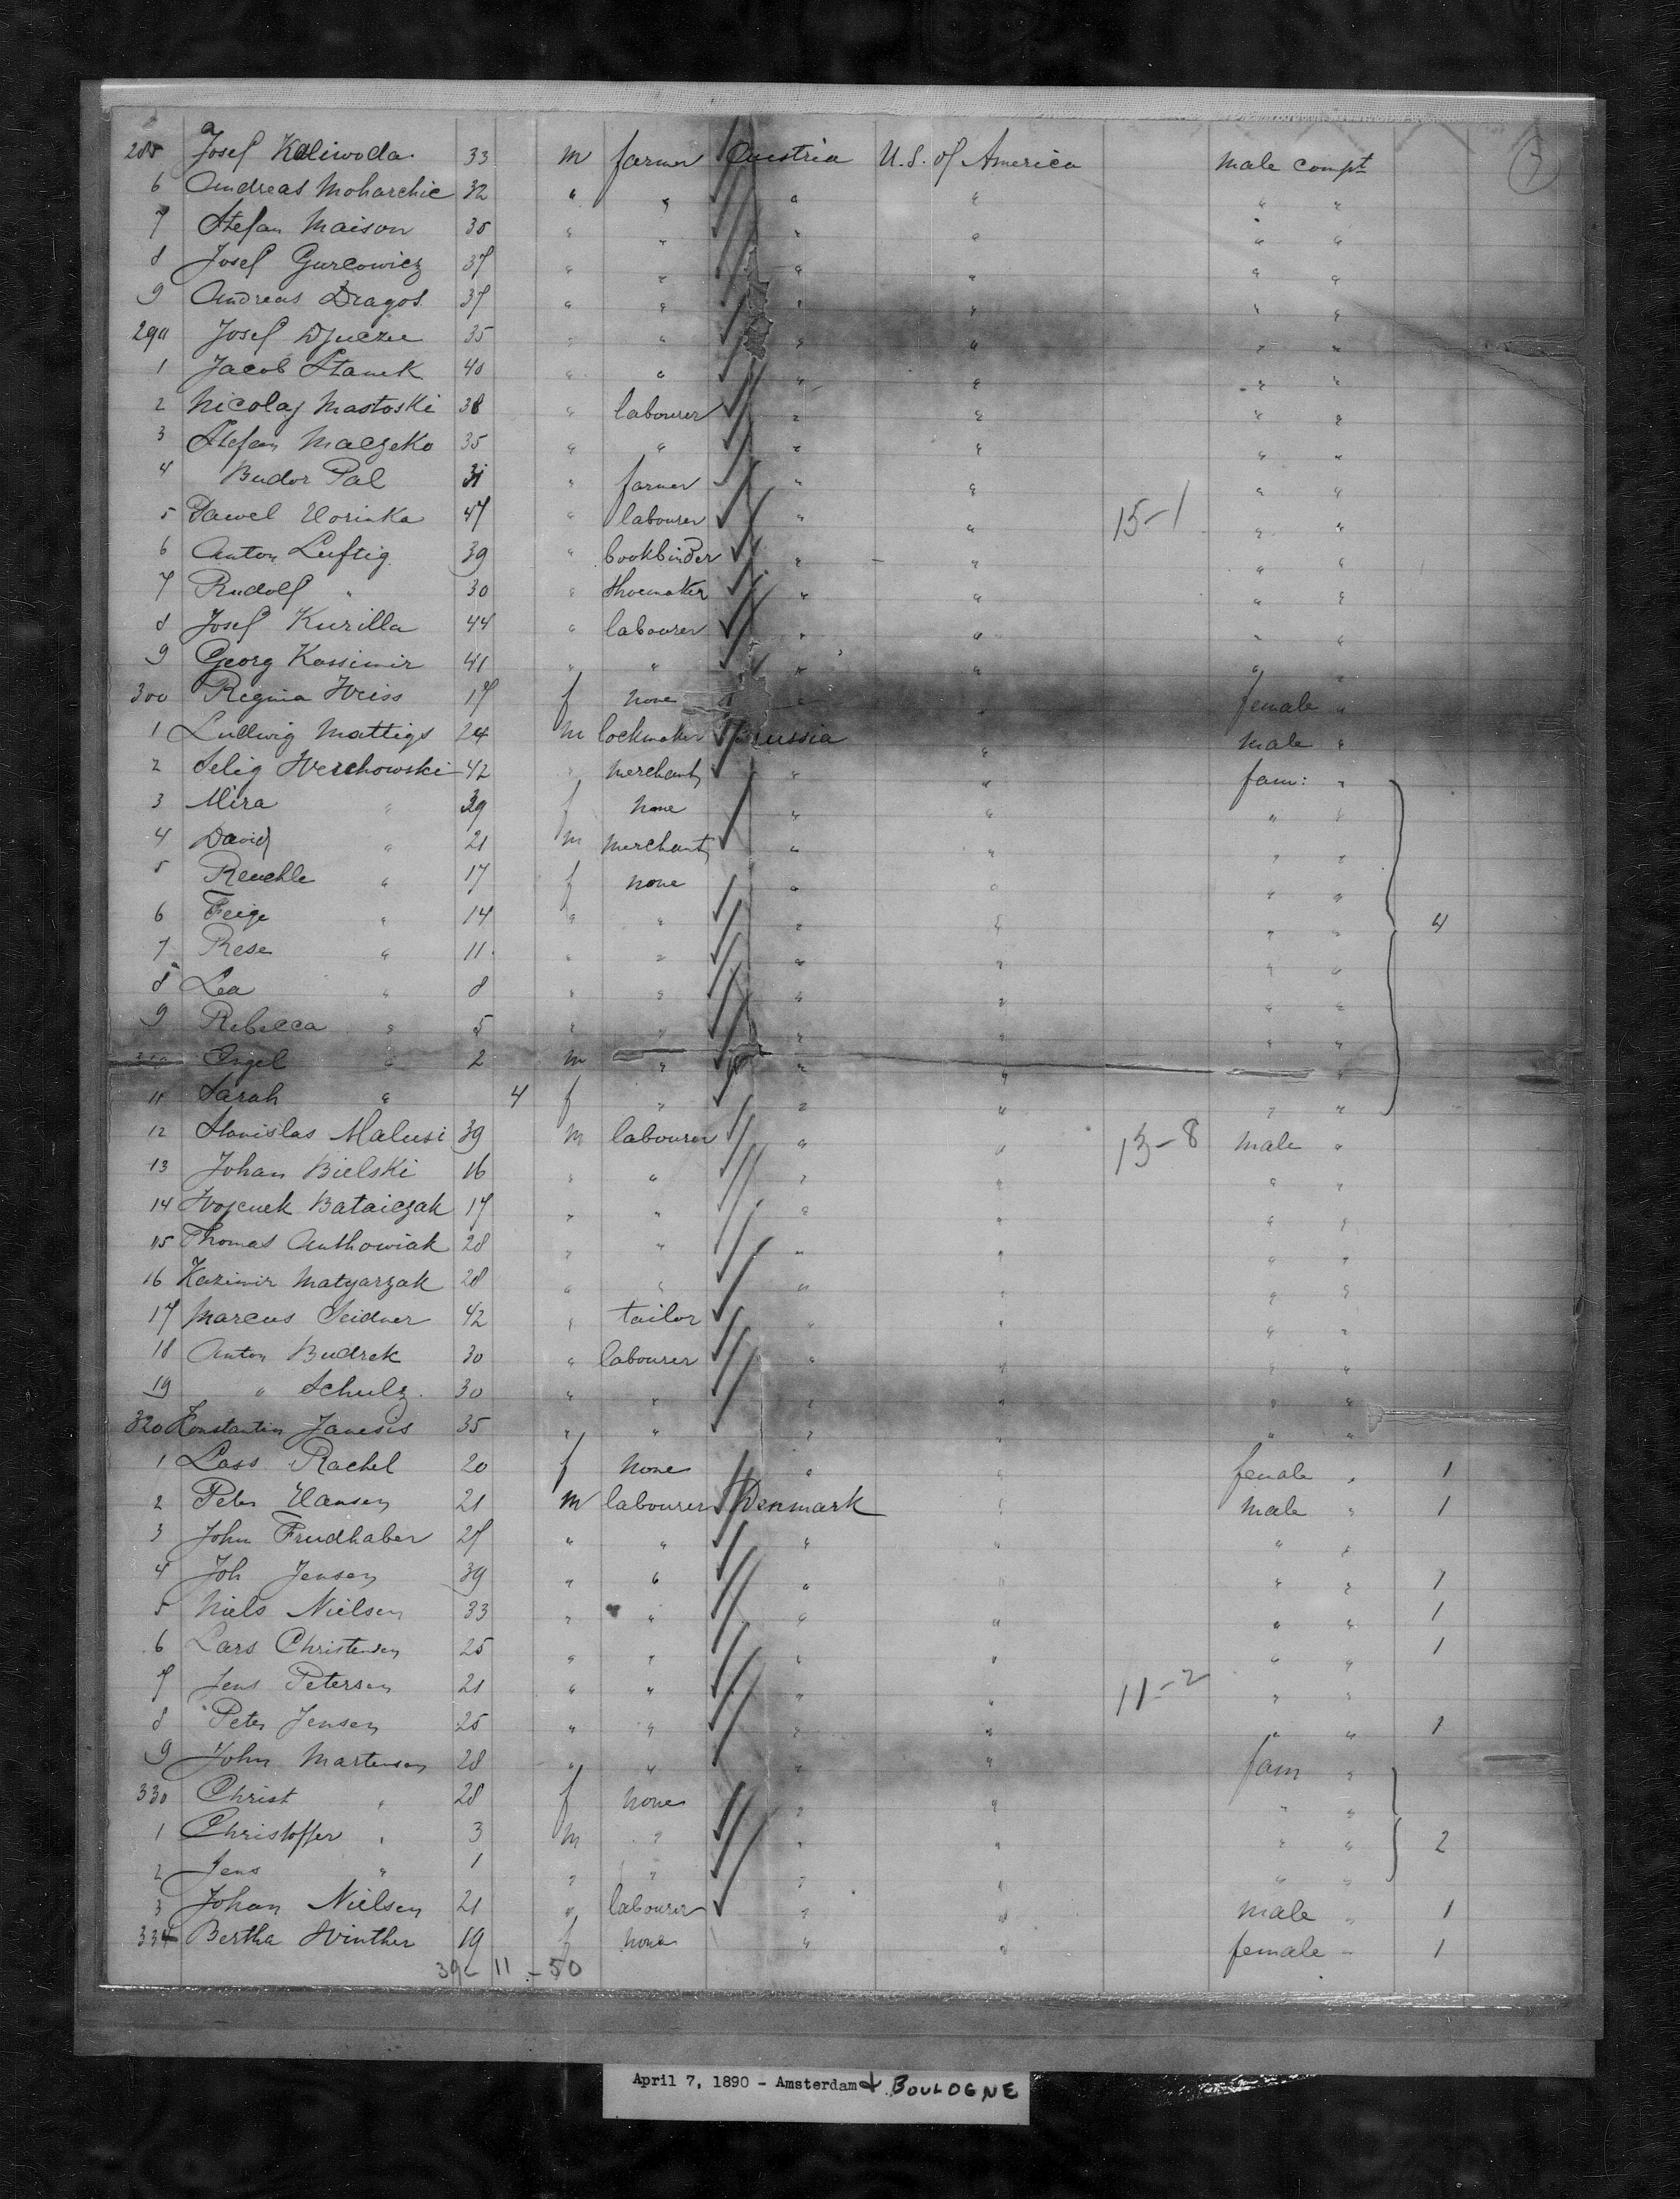 7
285 Josef Kaliwoda 33 m farmer Austria U.S. of America male compt
6 Andreas Moharchic 32 " " " " " "
7 Stefan Maison 35 " " " " " "
8 Josef Gurcowicz 37 " " " " " "
9 Andreas Dragos 37 " " " " " "
290 Josef 35 " " " " " "
1 Jacob Stanek 40 " " " " " "
2 Nicolaj Mastoski 38 " labourer " " " "
3 Stefan Maczeko 35 " " " " " "
4 Budor Pal 31 " farmer " " " "
5 Pawel Horinka 47 " labourer " " 15-1 " "
6 Anton Luftig 39 " bookbinder " " " "
7 Rudolf " 30 " shoemaker " " " "
8 Josef Kurilla 44 " labourer " " " "
9 Georg Kassimir 41 " " " " " "
300 Regina Weiss 17 f none " " female "
1 Ludwig Mattigs 24 m lockmaker Prussia " male "
2 Selig Werchowski 42 " merchant " " fam: "
3 Mira " 39 f none " " " "
4 David " 21 m merchant " " " "
5 Reuchle " 17 f none " " " "
6 Feige " 14 " " " " " " 4
7 Rese " 11 " " " " " "
8 Lea " 8 " " " " " "
9 Rebecca " 5 " " " " " "
310 " 2 m " " " " "
11 Sarah " 4 f " " " " "
12 Stanislas Malusi 39 m labourer " " 13-8 male "
13 Johan Bielski 16 " " " " " "
14 Bataiczak 17 " " " " " "
15 Thomas Anthowiak 28 " " " " " "
16 Kazimir Matyarzak 28 " " " " " "
17 Marcus Seidner 42 " tailor " " " "
18 Anton Budrek 30 " labourer " " " "
19 " Schulz 30 " " " " " "
320 Konstantin Janesis 35 " " " " " "
1 Lass Rachel 20 f none " " female " 1
2 Peter Hansen 21 m labourer Denmark " male " 1
3 John Frudhaber 27 " " " " " "
4 Joh Jensen 39 " " " " " " 1
5 Niels Nielsen 33 " " " " " " 1
6 Lars Christensen 25 " " " " " " 1
7 Jens Petersen 21 " " " " 11-2 " "
8 Peter Jensen 25 " " " " " " 1
9 John Martensen 28 " " " " fam "
330 Christ " 28 f none " " " "
1 Christoffer " 3 m " " " " " 2
2 Jens " 1 " " " " " "
3 Johan Nielsen 21 " labourer " " male " 1
334 Bertha Winther 19 f none " " female " 1
39 - 11 - 50
April 7, 1890 - Amsterdam & BOULOGNE